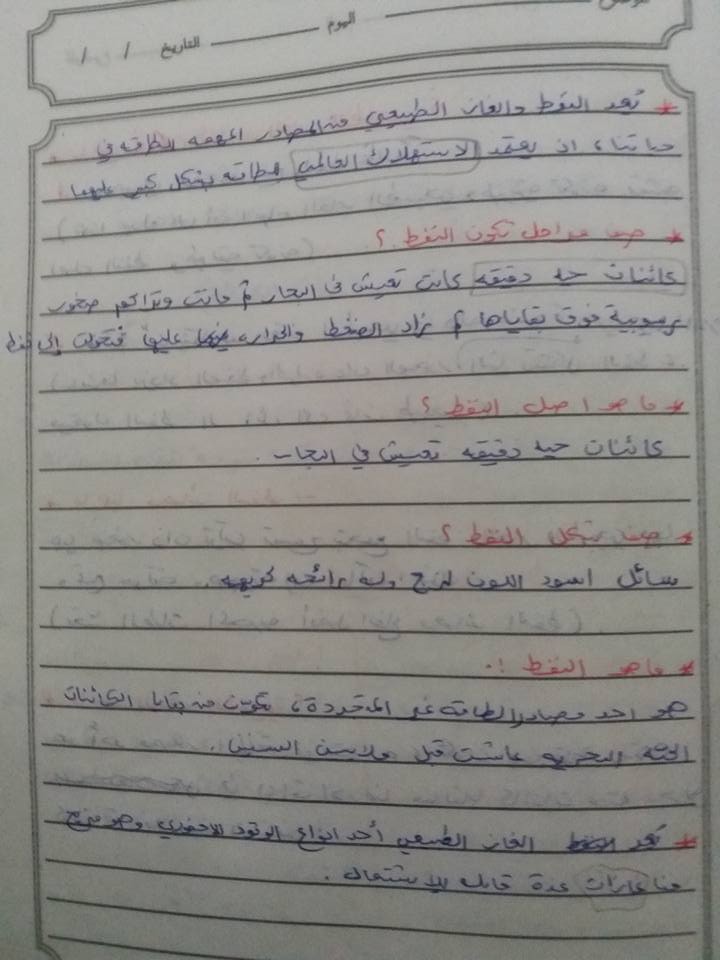 اليوم التاريخ / /
* تعد النفط والغاز الطبيعي من المصادر المهمه للطاقه في
حياتنا، اذ يعتمد الاستهلاك العالمي للطاقه بشكل كبير عليهما
* صف مراحل تكون النفط ؟
كائنات حيه دقيقه كانت تعيش في البحار ثم ماتت وتراكم صخور
رسوبية فوق بقاياها ثم زاد الضغط والحراره عليها فتحولت إلى نفط
* ما هو اصل النفط ؟
كائنات حيه دقيقه تعيش في البحار .
* صف شكل النفط ؟
سائل اسود اللون لزج وله رائحه كريهه .
* ما هو النفط ؟.
هو احد مصادر الطاقه غير المتجددة، تكون من بقايا الكائنات
الحيه البحريه عاشت قبل ملايين السنين .
* تعد الغاز الطبيعي أحد انواع الوقود الاحفوري وهو مزيج
من غازات عدة قابله للاشتعال .